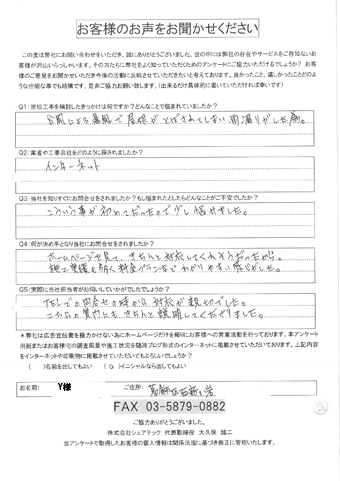 お客様のお声をお聞かせください
この度は弊社にお問い合わせをいただき、誠にありがとうございました。世の中には弊社の存在やサービスをご存知ないお
客様が沢山いらっしゃいます。その方たちに弊社をよく知っていただくためのアンケートにご協力いただけるでしょうか？お
客様のご意見をお聞かせいただき今後の活動に反映させていただきたいと考えております。良かったこと、嬉しかったことどのよ
うな些細な事でも結構です。是非ご協力お願い致します。（出来るだけ具体的に書いていただければ幸いです）
Q1:屋根工事を検討したきっかけは何ですか？どんなことで悩まれていましたか？
台風による暴風で屋根がとばされてしまい雨漏りがした為。
Q2:業者や工事会社をどのように探されましたか？
インターネット
Q3:当社を知りすぐにお問合せされましたか？もし悩まれたとしたらどんなことがご不安でしたか？
こういう事が初めてだったので少し悩みました。
Q4:何が決め手となり当社にお問合せをされましたか？
ホームページを見て、きちんと対応してくれそうだったから。
施工実績も多く料金プランなどわかりやすい感じがした。
Q5:実際に当社担当者がお伺いしていかがでしたでしょうか？
TELでの問合せの時から対応が親切でした。
こちらの質問にもきちんと説明してくださいました。
＊弊社は広告宣伝費を極力かけない為にホームページだけを頼りにお客様への営業活動を行っております。本アンケート
用紙またはお客様宅の調査風景や施工状況を随時ブログ形式のインターネットに掲載させていただいております。上記内容
をインターネットや印刷物に掲載させていただいてもよろしいでしょうか？
（ ）名前を出してもよい （○）イニシャルなら出してもよい
お名前: Y様 ご住所: 葛飾区
FAX 03-5879-0882
ご協力ありがとうございました。
株式会社シェアテック 代表取締役 大久保 誠二
当アンケートで取得したお客様の個人情報は関係法規に基づき厳正に管理いたします。